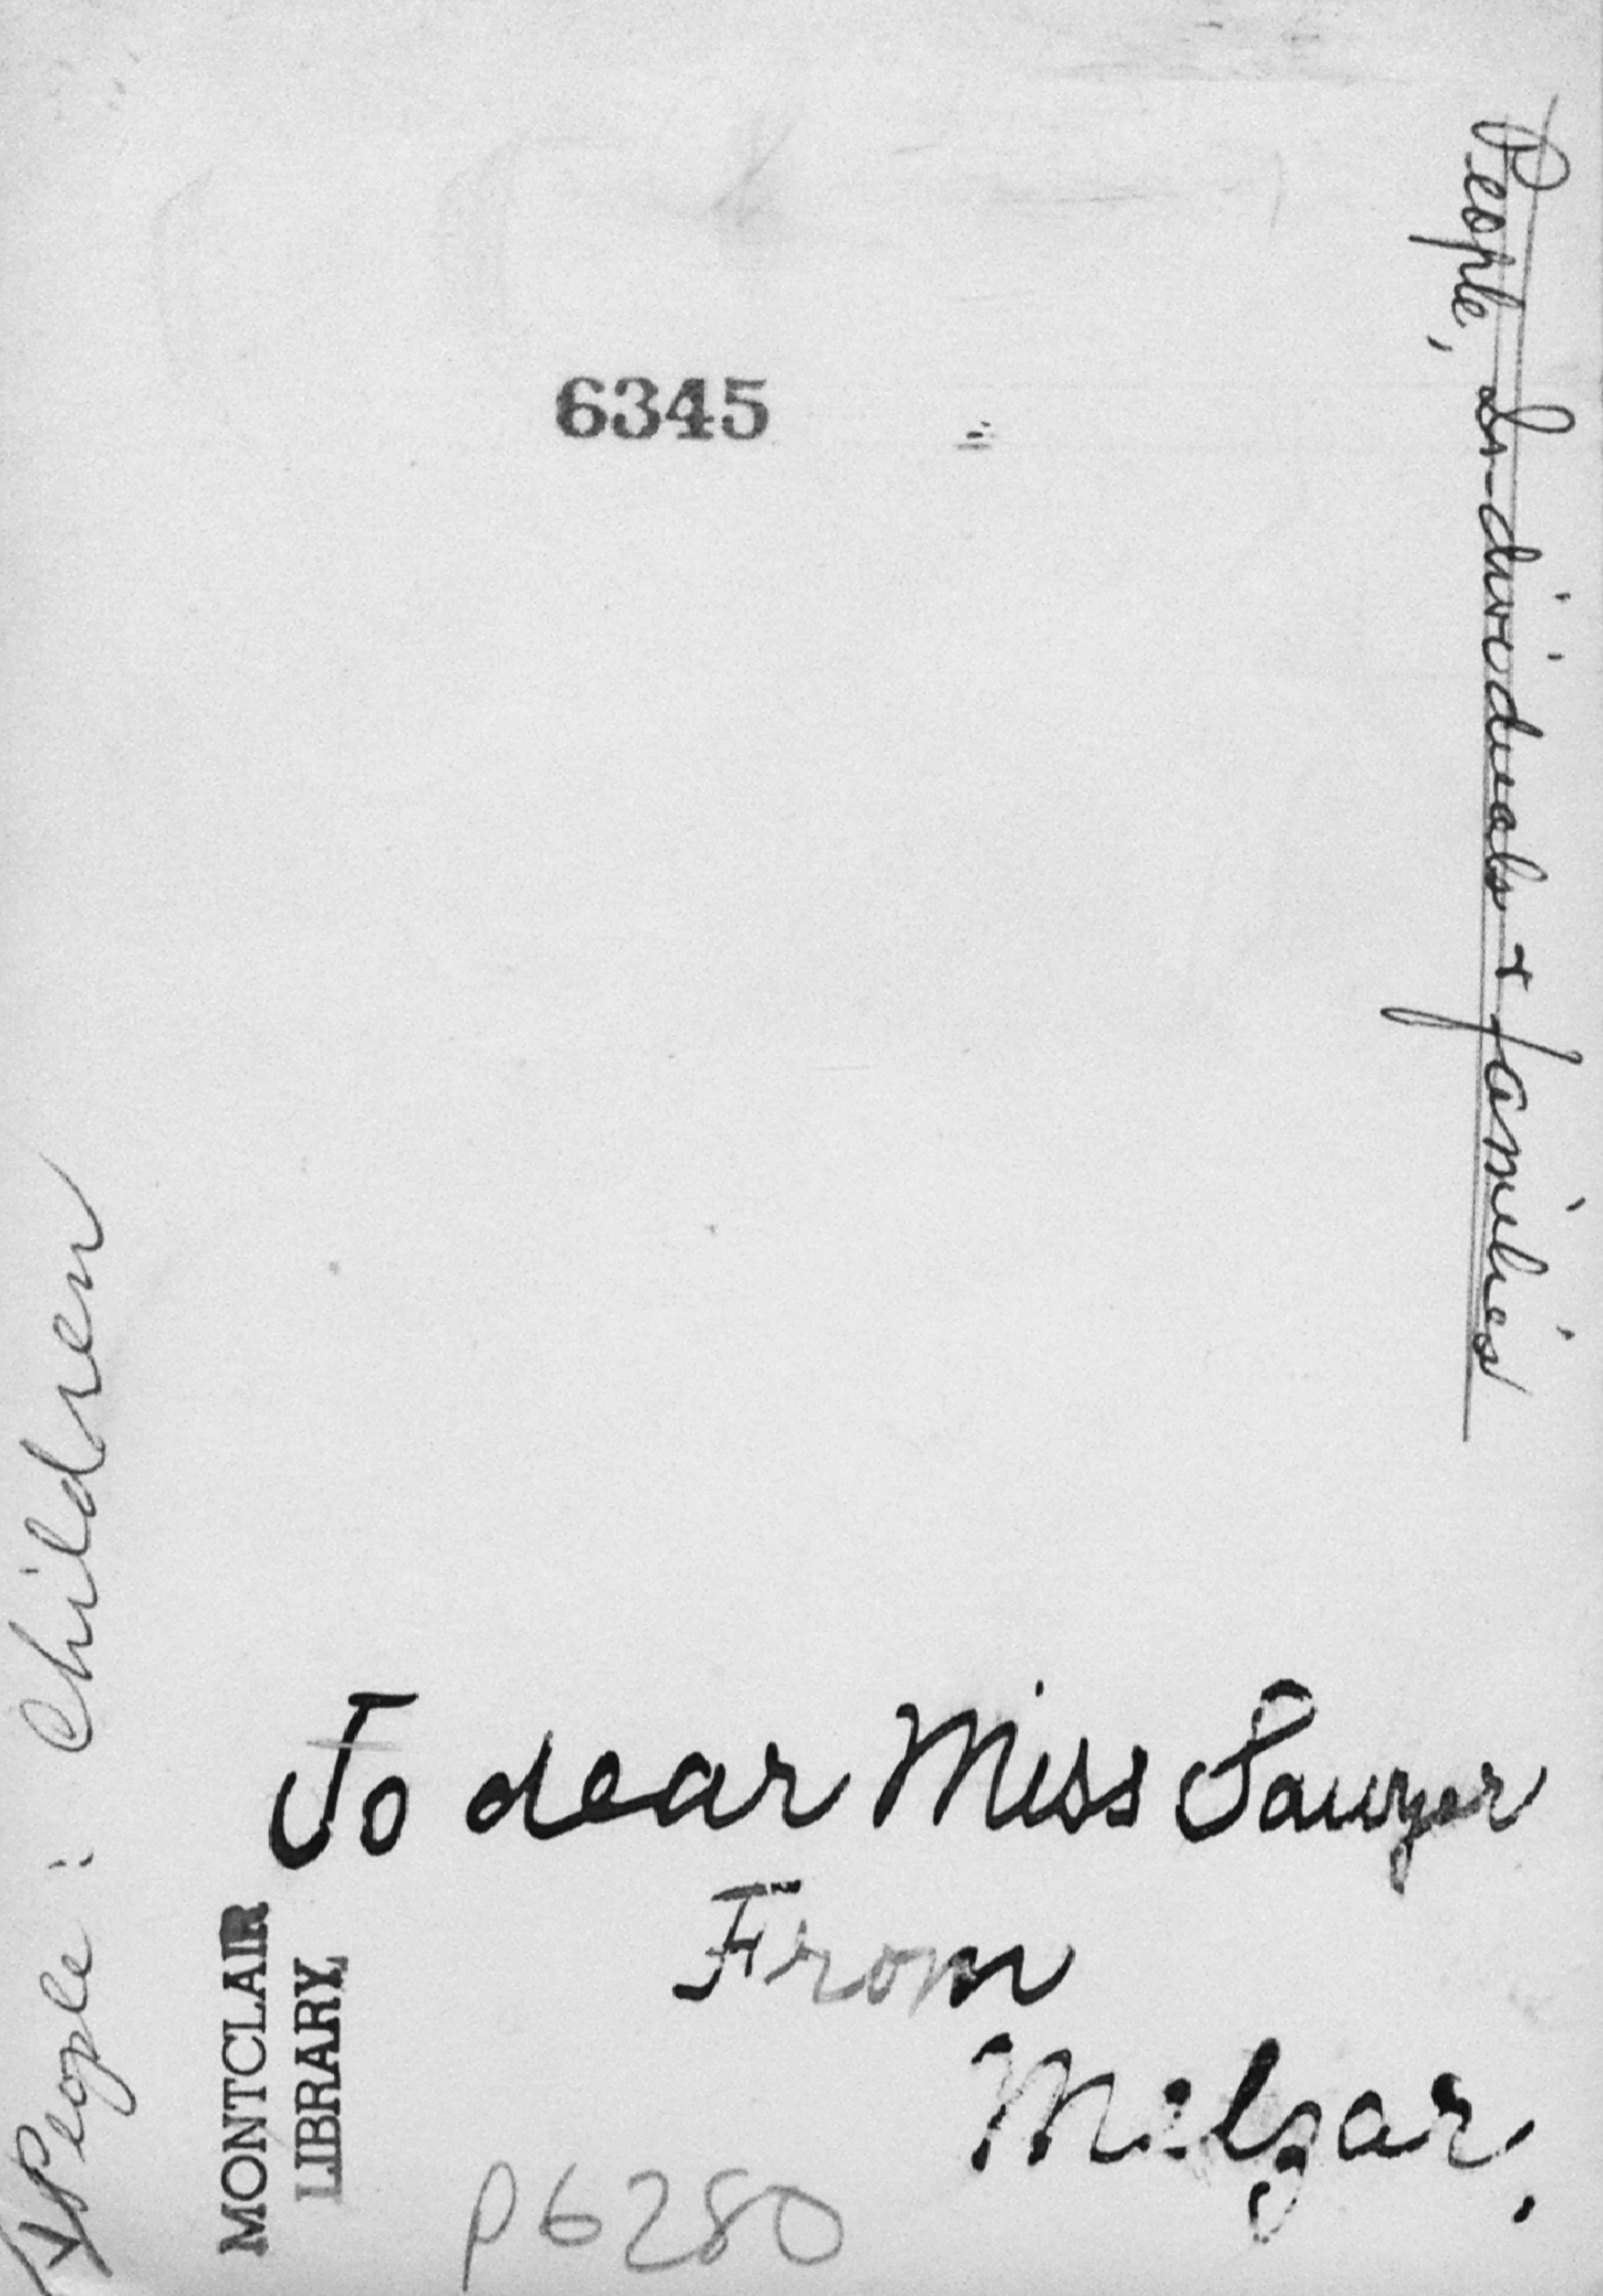 6345
People, Individuals + families
People: Children
To dear Miss Sawyer
From
Melzar.
MONTCLAIR
LIBRARY
P6280